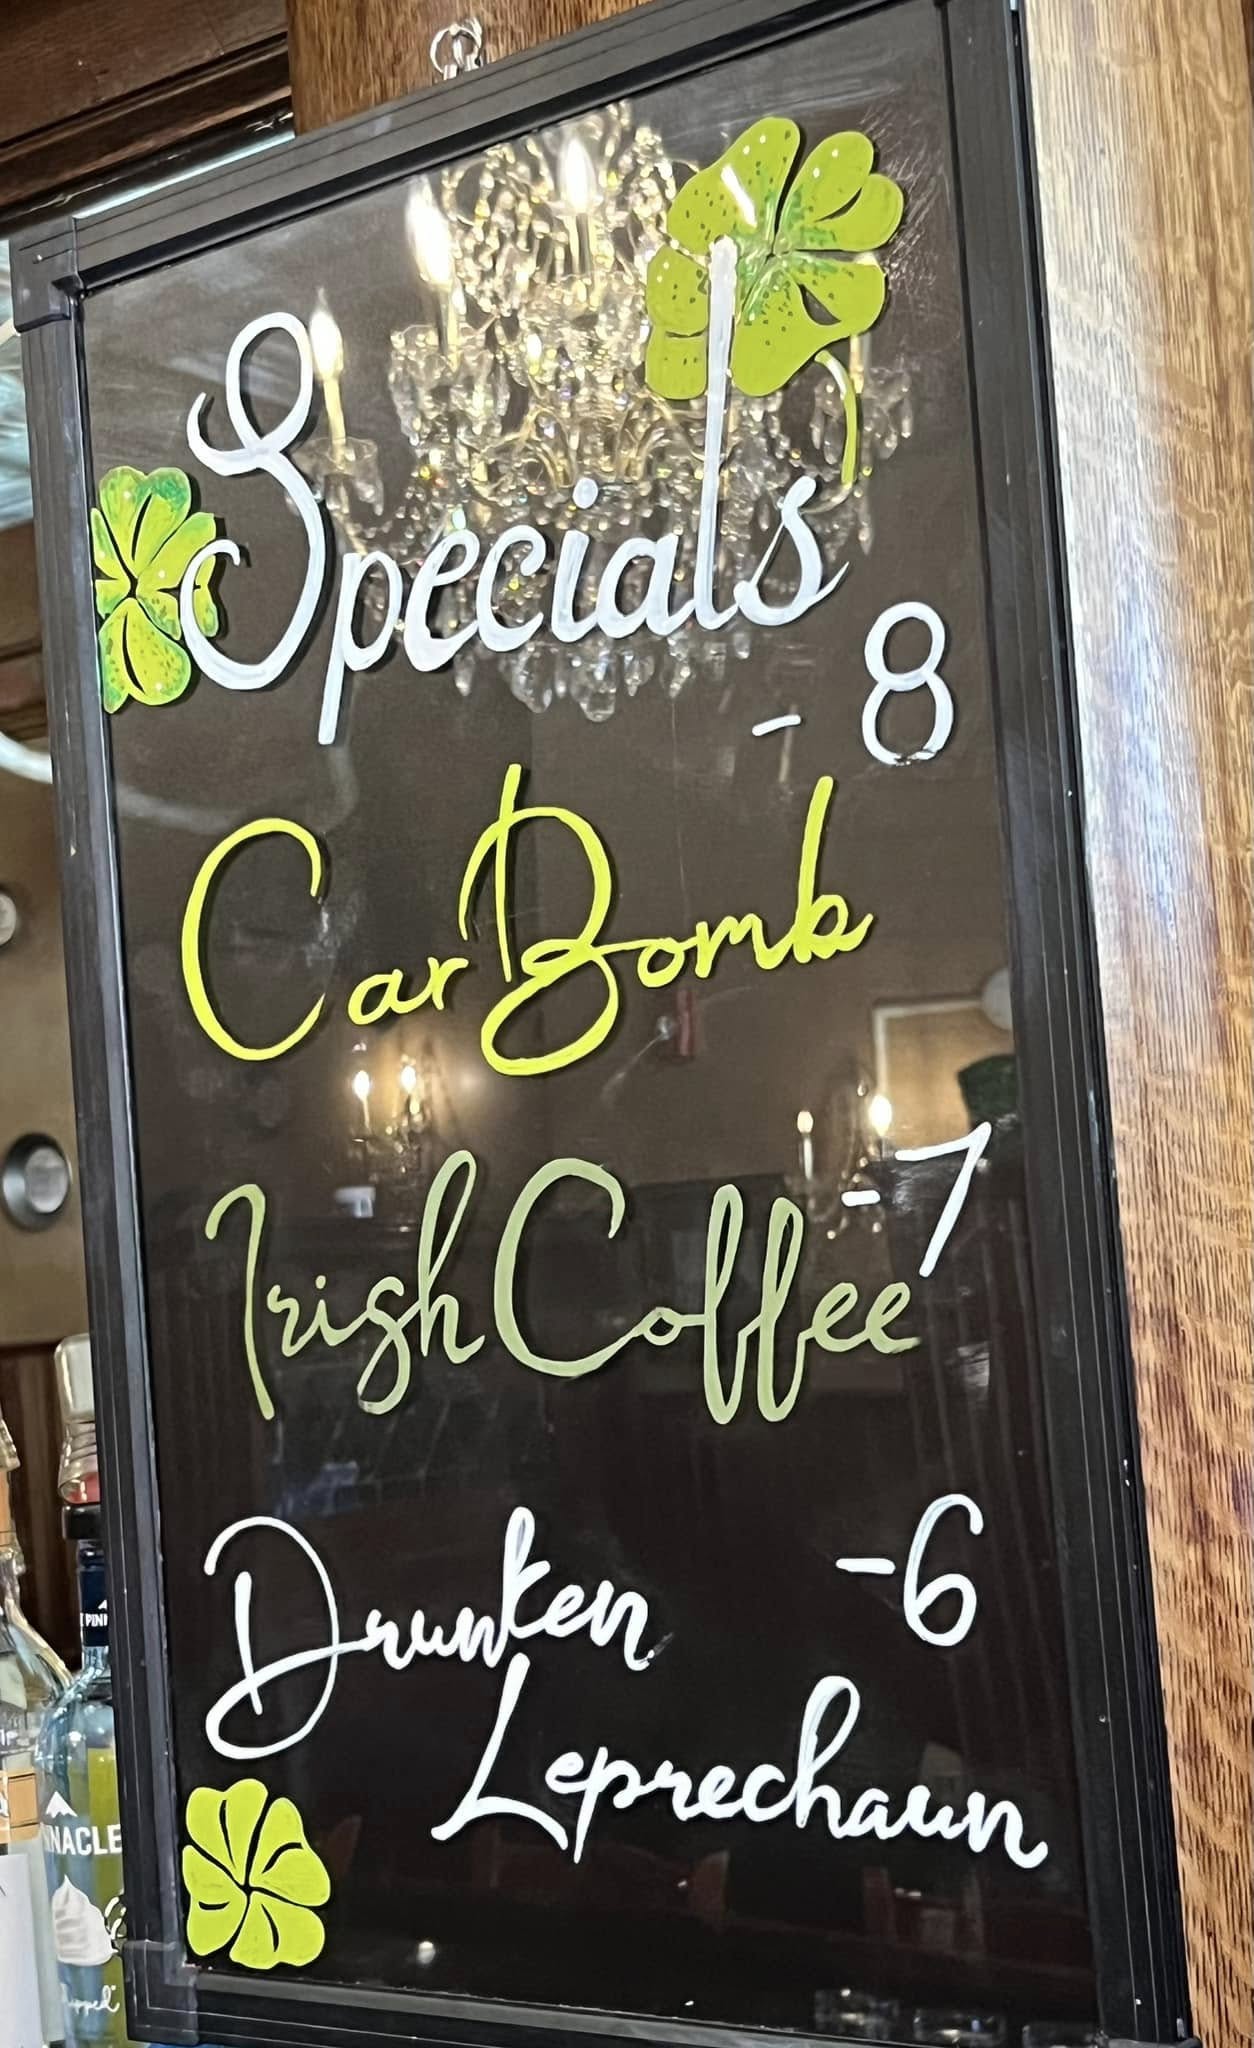 Specials
- 8
Car Bomb
- 7
Irish Coffee
Drunken - 6
Leprechaun
PINNACLE
Whipped